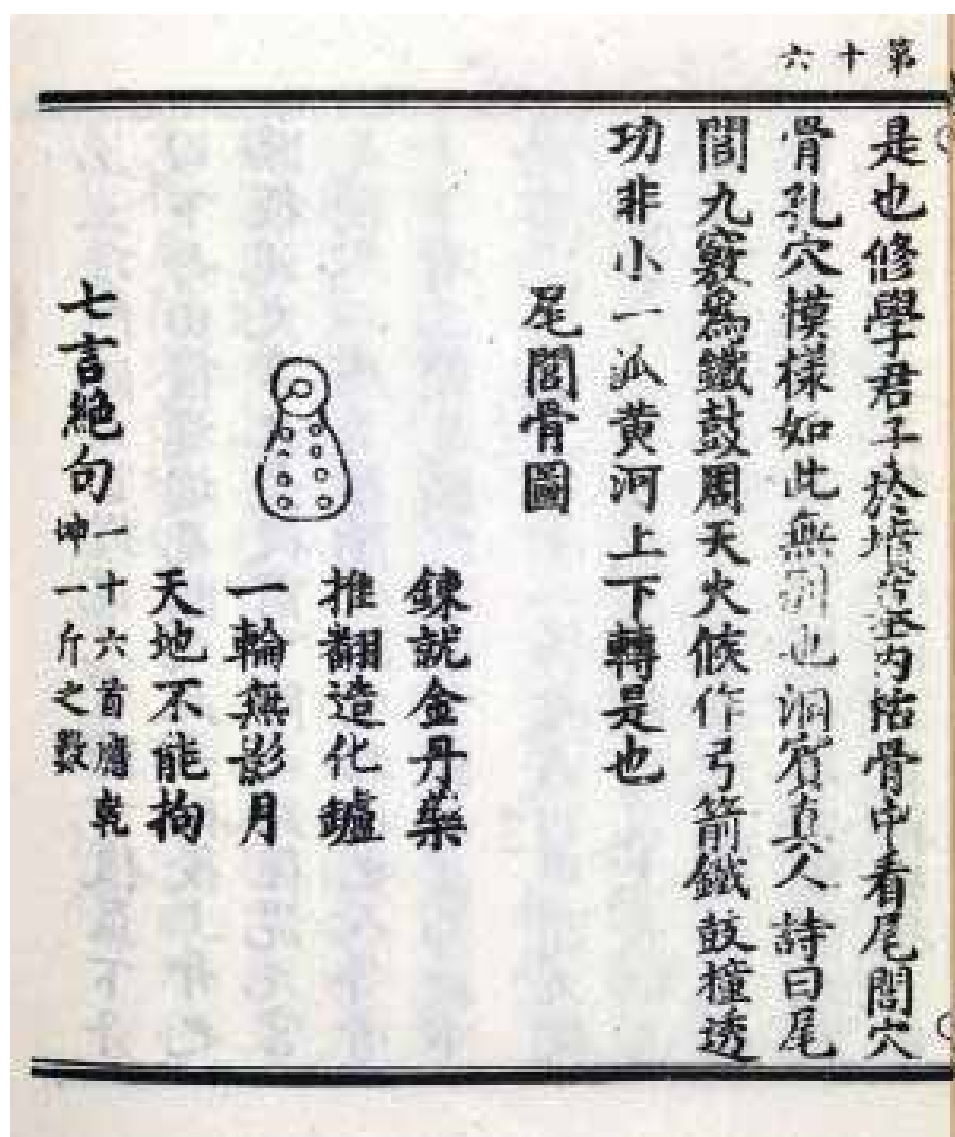 第十六
是也修學君子於墻窒丞內枯骨中看尾閭穴
骨孔穴模樣如此無別也洞賓真人詩曰尾
閭九竅為鐵鼓周天火候作弓箭鐵鼓撞透
功非小一派黃河上下轉是也
尾閭骨圖
鍊就金丹藥
推翻造化鑪
一輪無影月
天地不能拘
七言絕句一十六首應乾
坤一斤之數